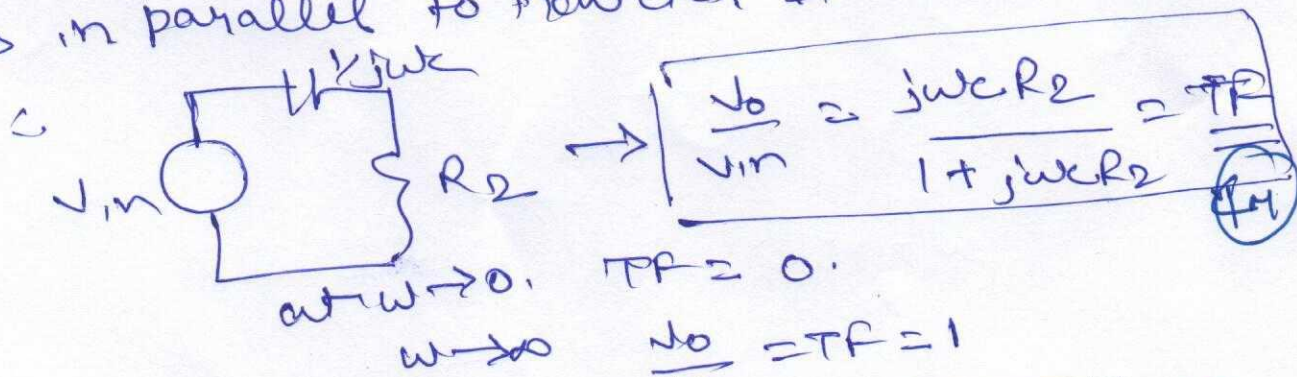 in parallel to
1/jwc
Vin
R2
→ Vo/Vin = jwcR2 / 1 + jwcR2 = TF
1M
at w→0. TF = 0.
w→∞ Vo = TF = 1